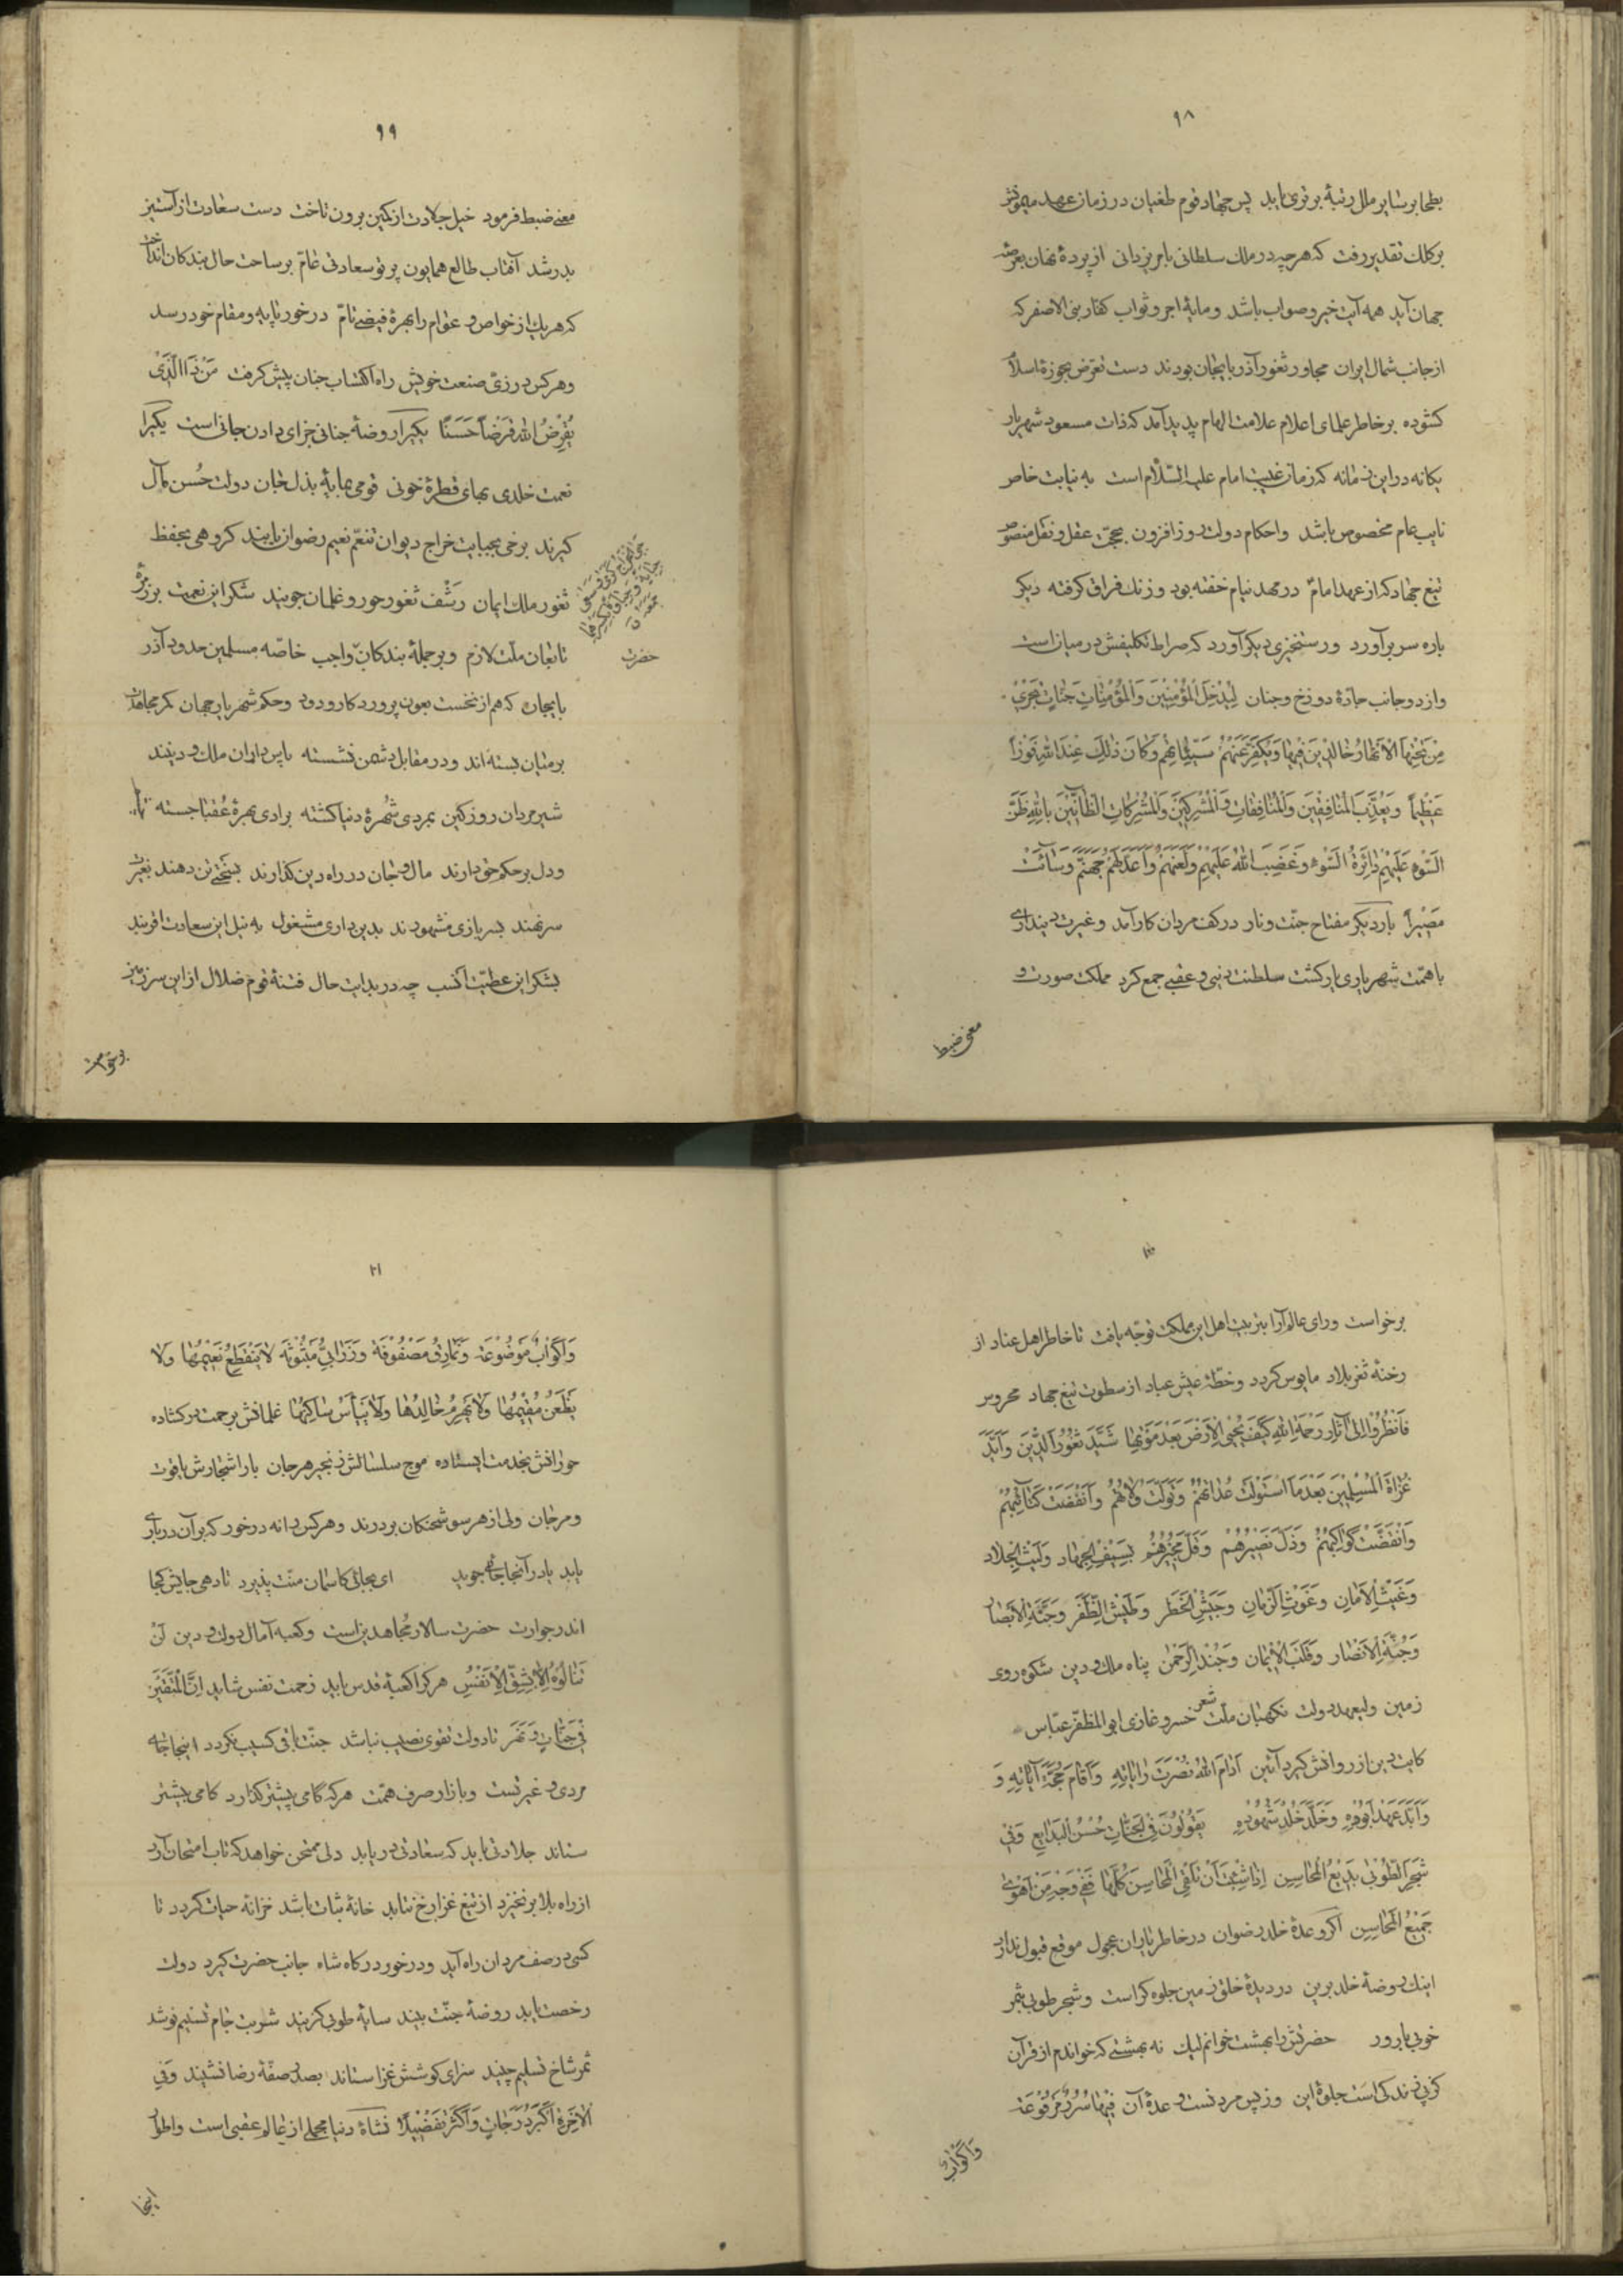 ۱۸
بطحا بر سایر ملل رتبهٔ برتری یابد پس جهاد قوم طغیان در زمان عهد میمونش
بر کلک تقدیر رفت که هر چه در ملک سلطانی بامر یزدانی از پردهٔ نهان بعرصهٔ
جهان آید همه آیت خیر و صواب باشد و مایهٔ اجر و ثواب کفار بنی الاصفر که
از جانب شمال ایران مجاور ثغور آذربایجان بودند دست تعرض بحوزهٔ اسلام
کشوده بر خاطر علمای اعلام علامت الهام پدید آمد که ذات مسعود شهریار
یکانه در این زمانه که زمان غیبت امام علیه السّلام است به نیابت خاص
نایب عام مخصوص باشد و احکام دولت روز افزون بحجّت عقل و نقل منصوص
تیغ جهاد که از عهد امام در مهد نیام خفته بود و زنک فراق کرفته دیکر
باره سر برآورد و رستخیزی دیکر آورد که صراط تکلیفش در میان است
و از دو جانب جادهٔ دوزخ و جنان لِیُدْخِلَ الْمُؤْمِنینَ وَالْمُؤْمِناتِ جَنّاتٍ تَجْری
مِنْ تَحْتِهَا الْاَنْهارُ خالِدینَ فیها وَیُکَفِّرَ عَنْهُمْ سَیِّئاتِهِمْ وَکانَ ذٰلِکَ عِنْدَ اللهِ فَوْزاً
عَظیماً وَیُعَذِّبَ الْمُنافِقینَ وَالْمُنافِقاتِ وَالْمُشْرِکینَ وَالْمُشْرِکاتِ الظّانّینَ بِاللهِ ظَنَّ
السَّوْءِ عَلَیْهِمْ دائِرَةُ السَّوْءِ وَغَضِبَ اللهُ عَلَیْهِمْ وَلَعَنَهُمْ وَاَعَدَّ لَهُمْ جَهَنَّمَ وَسائَتْ
مَصیراً بار دیکر مفتاح جنّت و نار در کف مردان کار آمد و غیرت دینداری
با همّت شهریاری یار کشت سلطنت دنیی و عقبی جمع کرد مملکت صورت و
معنی ضبط
۱۹
معنی ضبط فرمود خیل جلادت از کمین برون تاخت دست سعادت از آستین
بدر شد آفتاب طالع همایون پرتو سعادتی عامّ بر ساحت حال بندکان انداخت
که هر یک از خواص و عوام را بهرهٔ فیضی تامّ در خور پایه و مقام خود رسد
و هر کس در زیّ صنعت خویش راه اکتساب جنان پیش کرفت مَنْ ذَا الَّذی
یُقْرِضُ اللهَ قَرْضاً حَسَناً یکی را روضهٔ جنانی جزای دادن جانی است یکی را
نعمت خلدی بهای قطرهٔ خونی قومی بمایهٔ بذل جان دولت حُسن مآل
کیرند برخی بجبایت خراج دیوان تنعّم نعیم رضوان یابند کروهی بحفظ
ثغور ملک ایمان رَشْف ثغور حور و غلمان جویند شکر این نعمت بزرک بر
تابعان ملّت لازم و بر جملهٔ بندکان واجب خاصّه مسلمین حدود آذر
حضرت
بایجان که هم از نخست بعون پروردکار ودود و حکم شهریار جهان کمر مجاهدت
بر میان بسته اند و در مقابل دشمن نشسته پاس داران ملک و دینند
شیر مردان روز کین بمردی شُهرهٔ دنیا کشته برادی بهرهٔ عُقبا جسته
و دل بر حکم حق دارند مال و جان در راه دین کذارند بسختی تن دهند بغیرت
سر نهند بسربازی مشهودند بدین داری مشغول به نیل این سعادت افزیند
بشکر این عطیّت اَنسب چه در بدایت حال فتنهٔ قوم ضلال از این سرزمین
۲۰
برخواست و رای عالم آرا بتربیت اهل این مملکت توجّه یافت تا خاطر اهل عناد از
رخنهٔ ثغر بلاد مایوس کردد و خطّهٔ عیش عباد از سطوت تیغ جهاد محروس
فَانْظُرُوا اِلیٰ آثارِ رَحْمَةِ اللهِ کَیْفَ یُحْیِی الْاَرْضَ بَعْدَ مَوْتِها شَیَّدَ ثُغُورَ الدّینِ وَاَیَّدَ
غُزاةَ الْمُسْلِمینَ بَعْدَ مَا اسْتَوْلَتْ عُداتُهُمْ وَتَوَلَّتْ وُلاتُهُمْ وَانْفَضَّتْ کَتائِبُهُمْ
وَانْقَضَّتْ کَواکِبُهُمْ وَذَلَّ نَصیرُهُمْ وَقَلَّ مُجیرُهُمْ بِسَیْفِ الْجِهادِ وَلَیْثِ الْجِلادِ
وَغَیْثِ الْاَمانِ وَغَوْثِ الزَّمانِ وَجَیْشِ الْخَطَرِ وَطَیْشِ الظَّفَرِ وَجَنَّةِ الْاَبْصارِ
وَجُنَّةِ الْاَنْصارِ وَقَلْبِ الْاِیْمانِ وَجُنْدِ الرَّحْمٰنِ پناه ملک و دین شکوه روی
زمین ولیعهد دولت نکهبان ملّت شعر خسرو غازی ابو المظفّر عبّاس
کایت دین از روانش کیرد آئین اَدامَ اللهُ نُصْرَتَ رایاتِهِ وَاَقامَ حُجَّةَ آیاتِهِ وَ
وَاَبَّدَ عَهْدَ اُبُودِهِ وَخَلَّدَ خُلْدَ شُهُودِهِ یَقُولُونَ فِی الْجَنّاتِ حُسْنُ الْبَدایِعِ وَفی
شَجَرِ الطُّوبیٰ بَدیعُ الْمَحاسِنِ اِذا شِئْتَ اَنْ تَلْقَی الْمَحاسِنَ کُلَّها فَفی وَجْهِ مَنْ تَهْویٰ
جَمیعُ الْمَحاسِنِ اکر وعدهٔ خلد رضوان در خاطر یاران عجول موقع قبول ندارد
اینک روضهٔ خلد برین در دیدهٔ خلق زمین جلوه کر است و شجر طوبی بثمر
خوبی بارور حضرتش را بهشت خوانم لیک نه بهشتی که خواندم از قرآن
کز پی زندکی است جلوهٔ این وز پس مردنست وعدهٔ آن فیها سُرُرٌ مَرْفُوعَةٌ
وَاَکْوابٌ
۲۱
وَاَکْوابٌ مَوْضُوعَةٌ وَنَمارِقُ مَصْفُوفَةٌ وَزَرابِیُّ مَبْثُوثَةٌ لا یَنْقَطِعُ نَعیمُها وَلا
یَظْعَنُ مُقیمُها وَلا یَهْرَمُ خالِدُها وَلا یَبْأَسُ ساکِنُها غلمانش برحمت در کشاده
حورانش بخدمت ایستاده موج سلسالش زنجیر مرجان بار اشجارش یاقوت
و مرجان ولی از هر سو شحنکان بر درند و هر کس را نه در خور که بر آن در باری
یابد یا در آنجا جاهی جوید ای بجائی کاسمان منّت پذیرد تا دهی جایش کجا
اندر جوارت حضرت سالار مجاهدین است و کعبهٔ آمال دولت و دین لَنْ
تَنالُوهُ اِلّا بِشِقِّ الْاَنْفُسِ هر کرا کعبهٔ قدس باید زحمت نفس شاید اِنَّ الْمُتَّقینَ
فی جَنّاتٍ وَنَهَرٍ تا دولت تقوی نصیب نباشد جنّت باقی کسیب نکردد اینجا جای
مردی و غیرتست و بازار صرف همّت هر که کامی پیشتر کذارد کامی بیشتر
ستاند جلادتی باید که سعادتی دریابد دلی ممتحن خواهد که تاب امتحان آرد
از راه بلا برنخیزد از تیغ غزا رخ نتابد خانهٔ ثبات باشد خزانهٔ حیات کردد تا
کسی در صف مردان راه آید و در خور درکاه شاه جانب حضرت کیرد دولت
رخصت یابد روضهٔ جنّت بیند سایهٔ طوبی کزیند شربت جام تسنیم نوشد
ثمر شاخ تسلیم چیند سزای کوشش غزا ستاند بصدر صفّهٔ رضا نشیند وَفِی
الْاٰخِرَةِ اَکْبَرُ دَرَجاتٍ وَاَکْثَرُ تَفْضیلاً نشأهٔ دنیا مجملی از عالم عقبی است و اطوار
اینجا